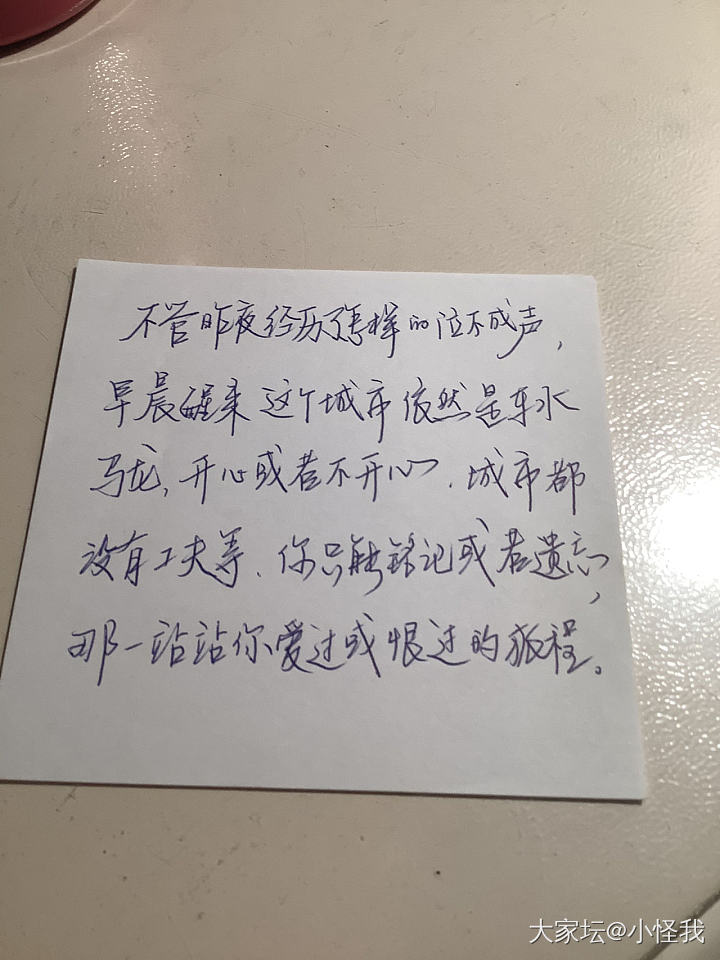 不管昨夜经历怎样的泣不成声,
早晨醒来这个城市依然是车水
马龙,开心或者不开心,城市都
没有工夫等,你只能铭记或者遗忘,
那一站站你爱过或恨过的旅程。
大家坛@小怪我